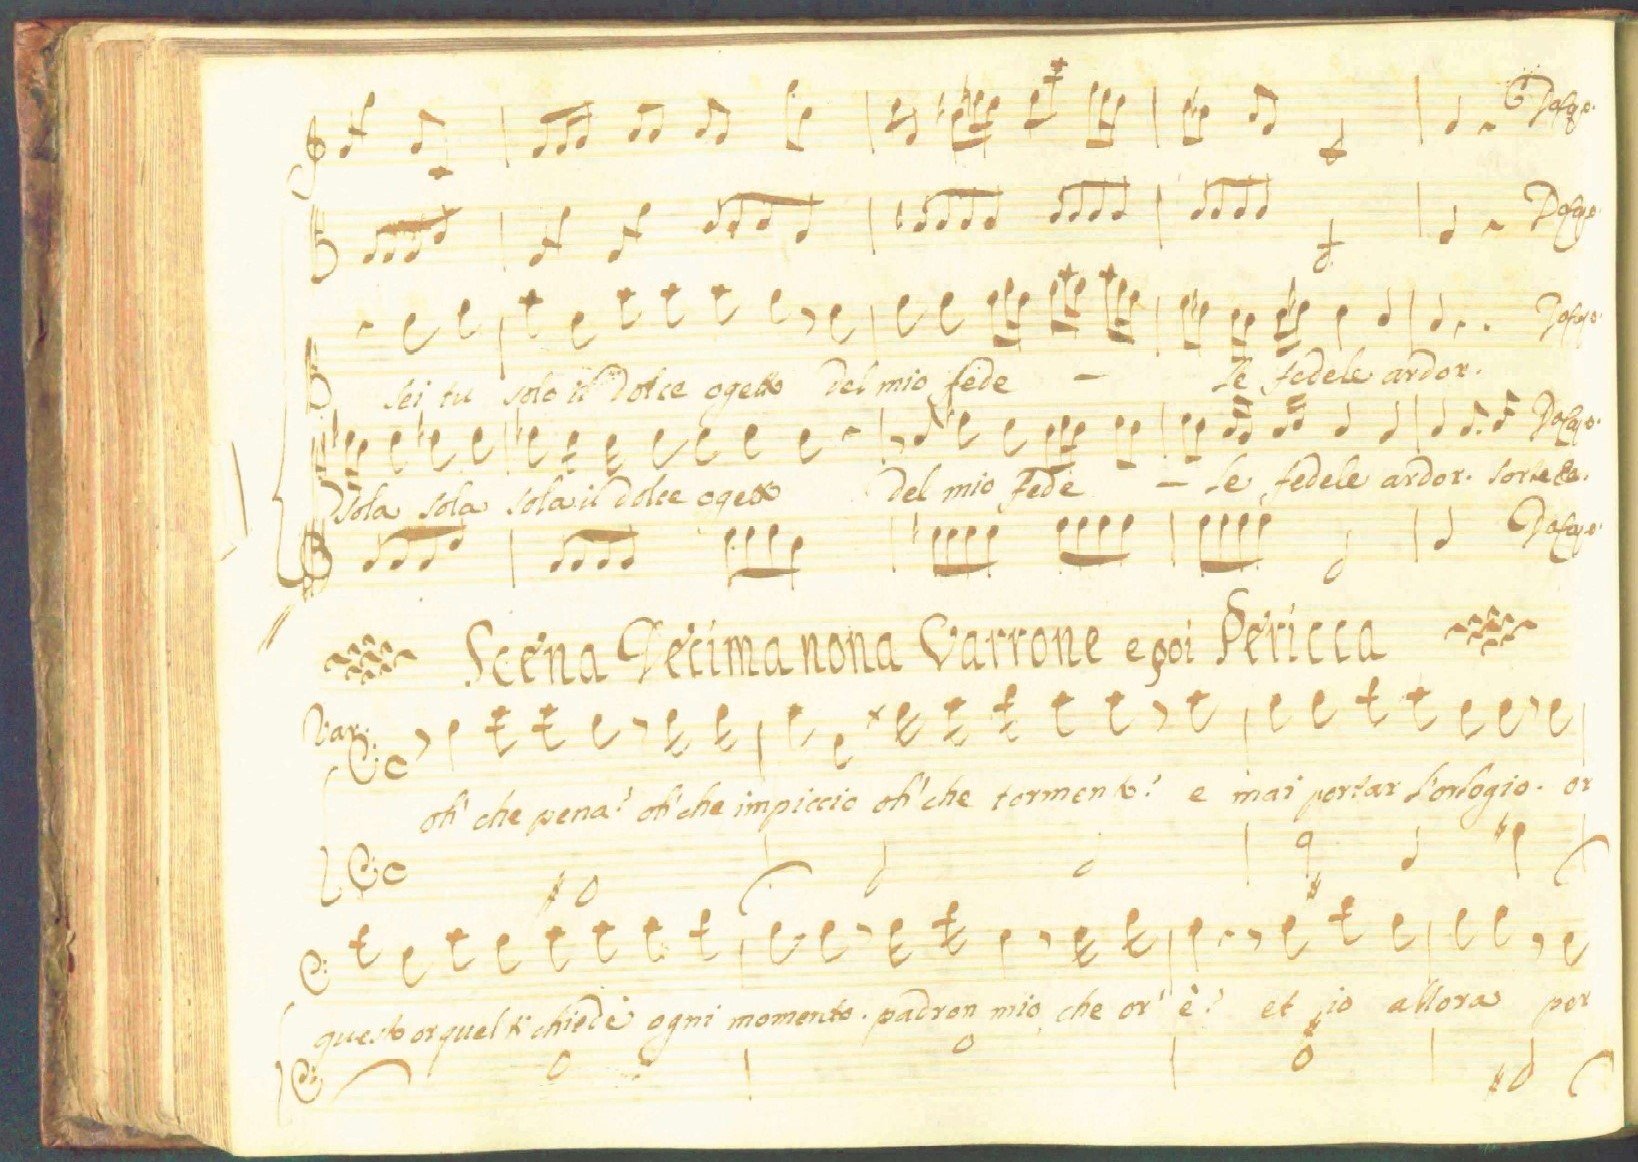 Da Capo.
Da Capo.
Da Capo.
Sei tu solo il dolce ogetto del mio fede - le fedele ardor.
Da Capo.
Sola sola sola il dolce ogetto del mio fede - le fedele ardor. Sorte &c.
Da Capo.
Scena Decima nona Varrone e poi Pericca
Var:
oh' che pena? oh' che impiccio oh' che tormento? e mai portar l'orlogio. or
questo or quel ti chiede ogni momento. padron mio che or' è? et io allora per